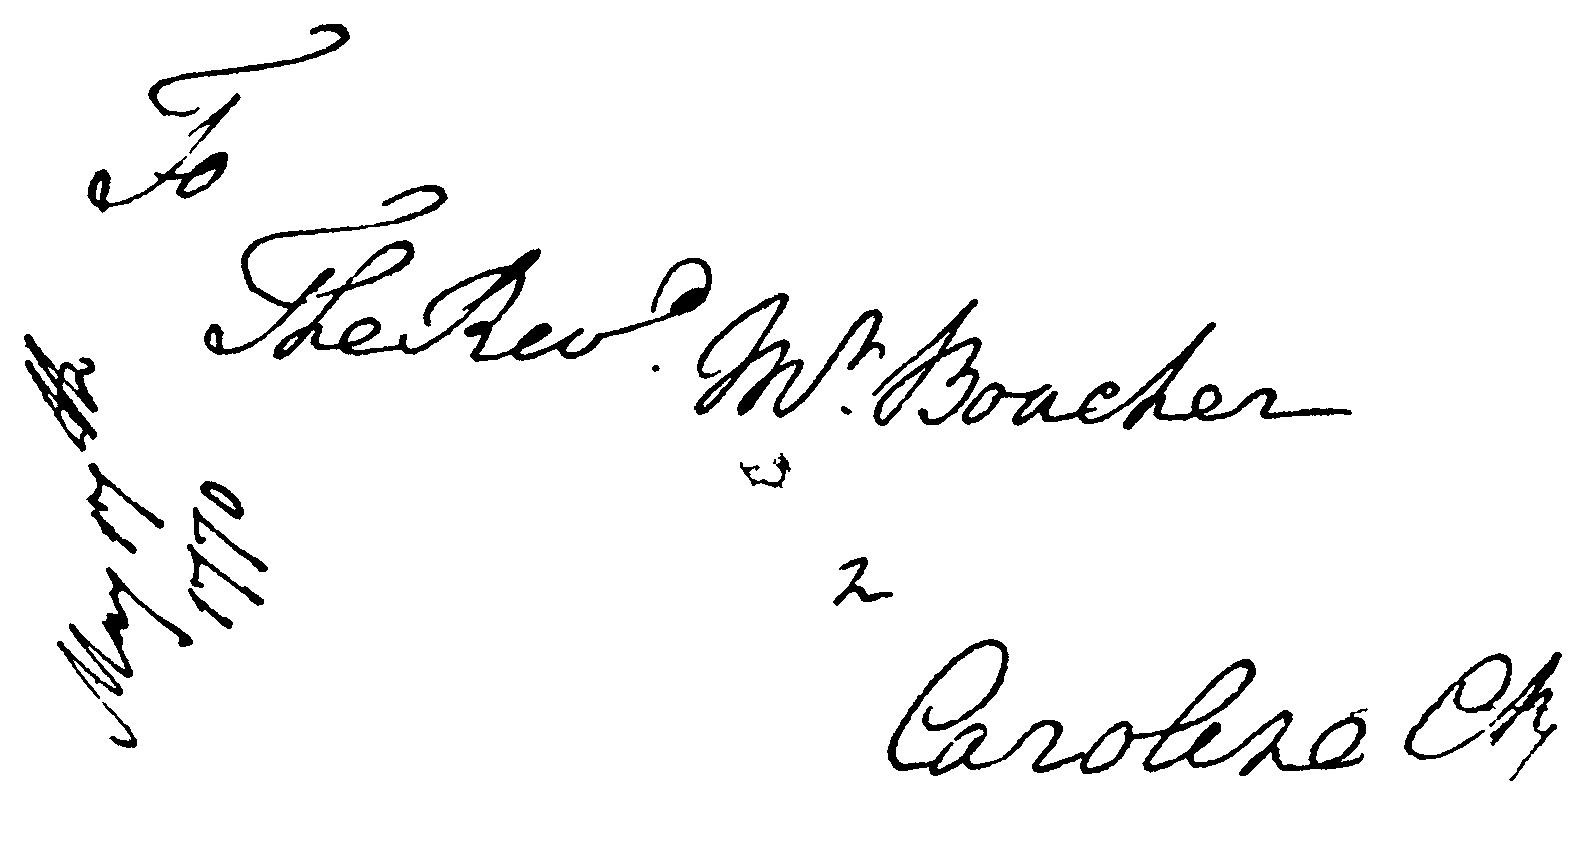 To
The Revd. Mr. Boucher
2
Caroline Cty
May 17
1770